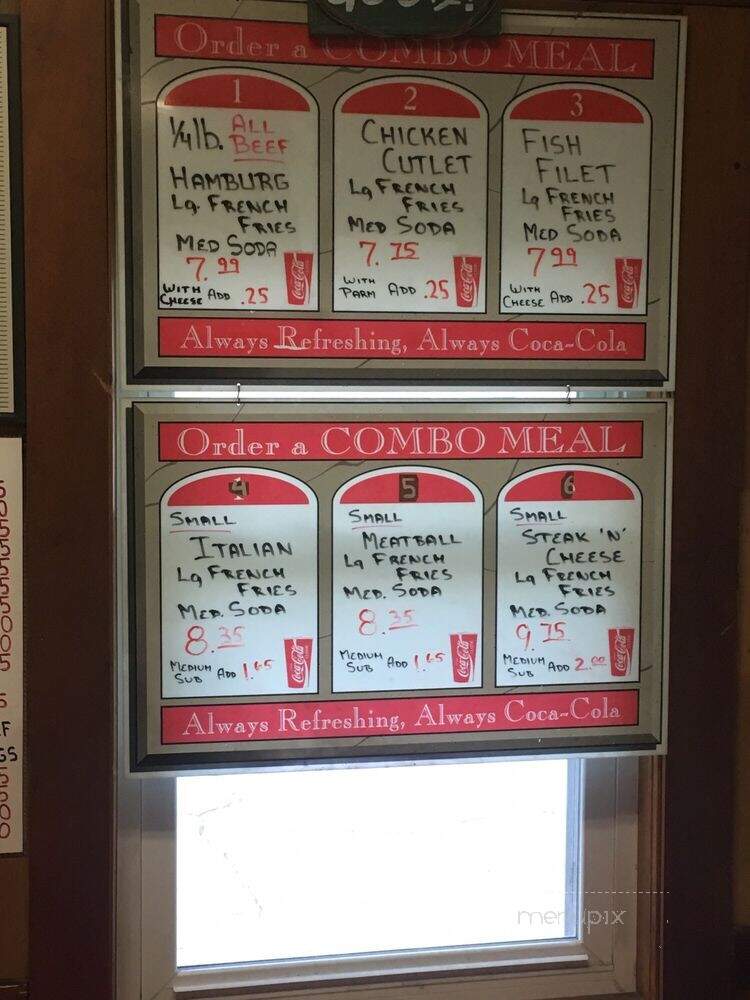 Order a COMBO MEAL
1
1/4 lb. ALL
BEEF
HAMBURG
Lg. FRENCH
FRIES
MED SODA
7.99
WITH
CHEESE ADD .25
Coca-Cola
2
CHICKEN
CUTLET
Lg FRENCH
FRIES
MED SODA
7.75
WITH
PARM ADD .25
Coca-Cola
3
FISH
FILET
Lg FRENCH
FRIES
MED SODA
799
WITH
CHEESE ADD .25
Coca-Cola
Always Refreshing, Always Coca-Cola
Order a COMBO MEAL
4
SMALL
ITALIAN
Lg FRENCH
FRIES
MED. SODA
8.35
MEDIUM
SUB ADD 1.65
Coca-Cola
5
SMALL
MEATBALL
Lg FRENCH
FRIES
MED. SODA
8.35
MEDIUM
SUB ADD 1.65
Coca-Cola
6
SMALL
STEAK 'N'
CHEESE
Lg FRENCH
FRIES
MED. SODA
9.75
MEDIUM
SUB ADD 2.00
Coca-Cola
Always Refreshing, Always Coca-Cola
menupix